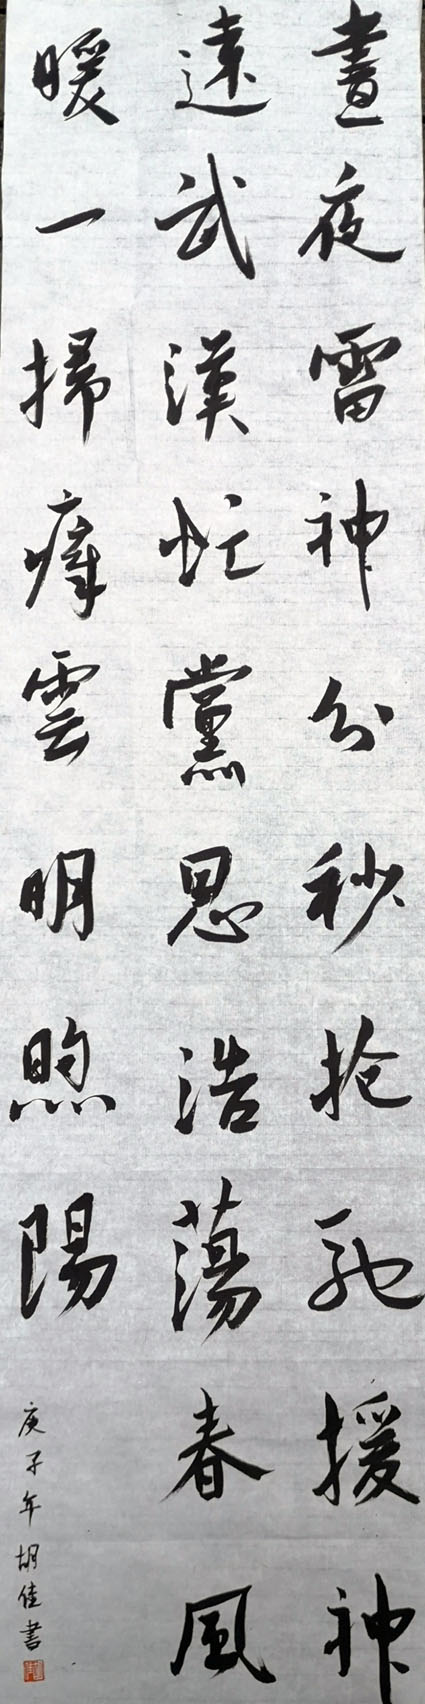 晝夜雷神分秒抢馳援神
遠武漢忙黨恩浩蕩春風
暖一掃瘴雲明煦陽
庚子年胡佳書